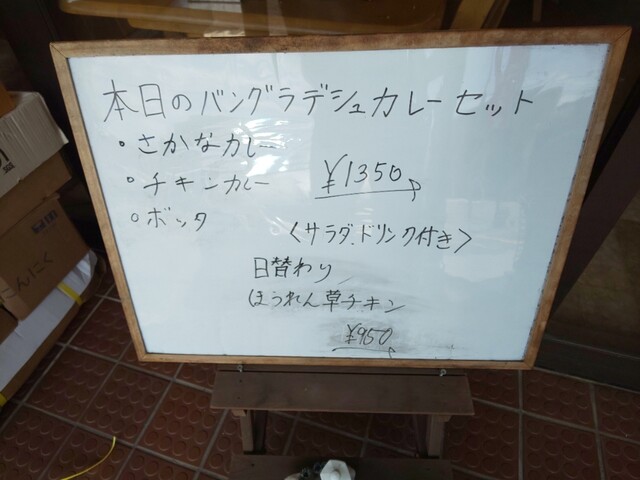 本日のバングラデシュカレーセット
・さかなカレー
・チキンカレー ¥1350
・ボック
<サラダ、ドリンク付き>
日替わり
ほうれん草チキン
¥950
にんにく